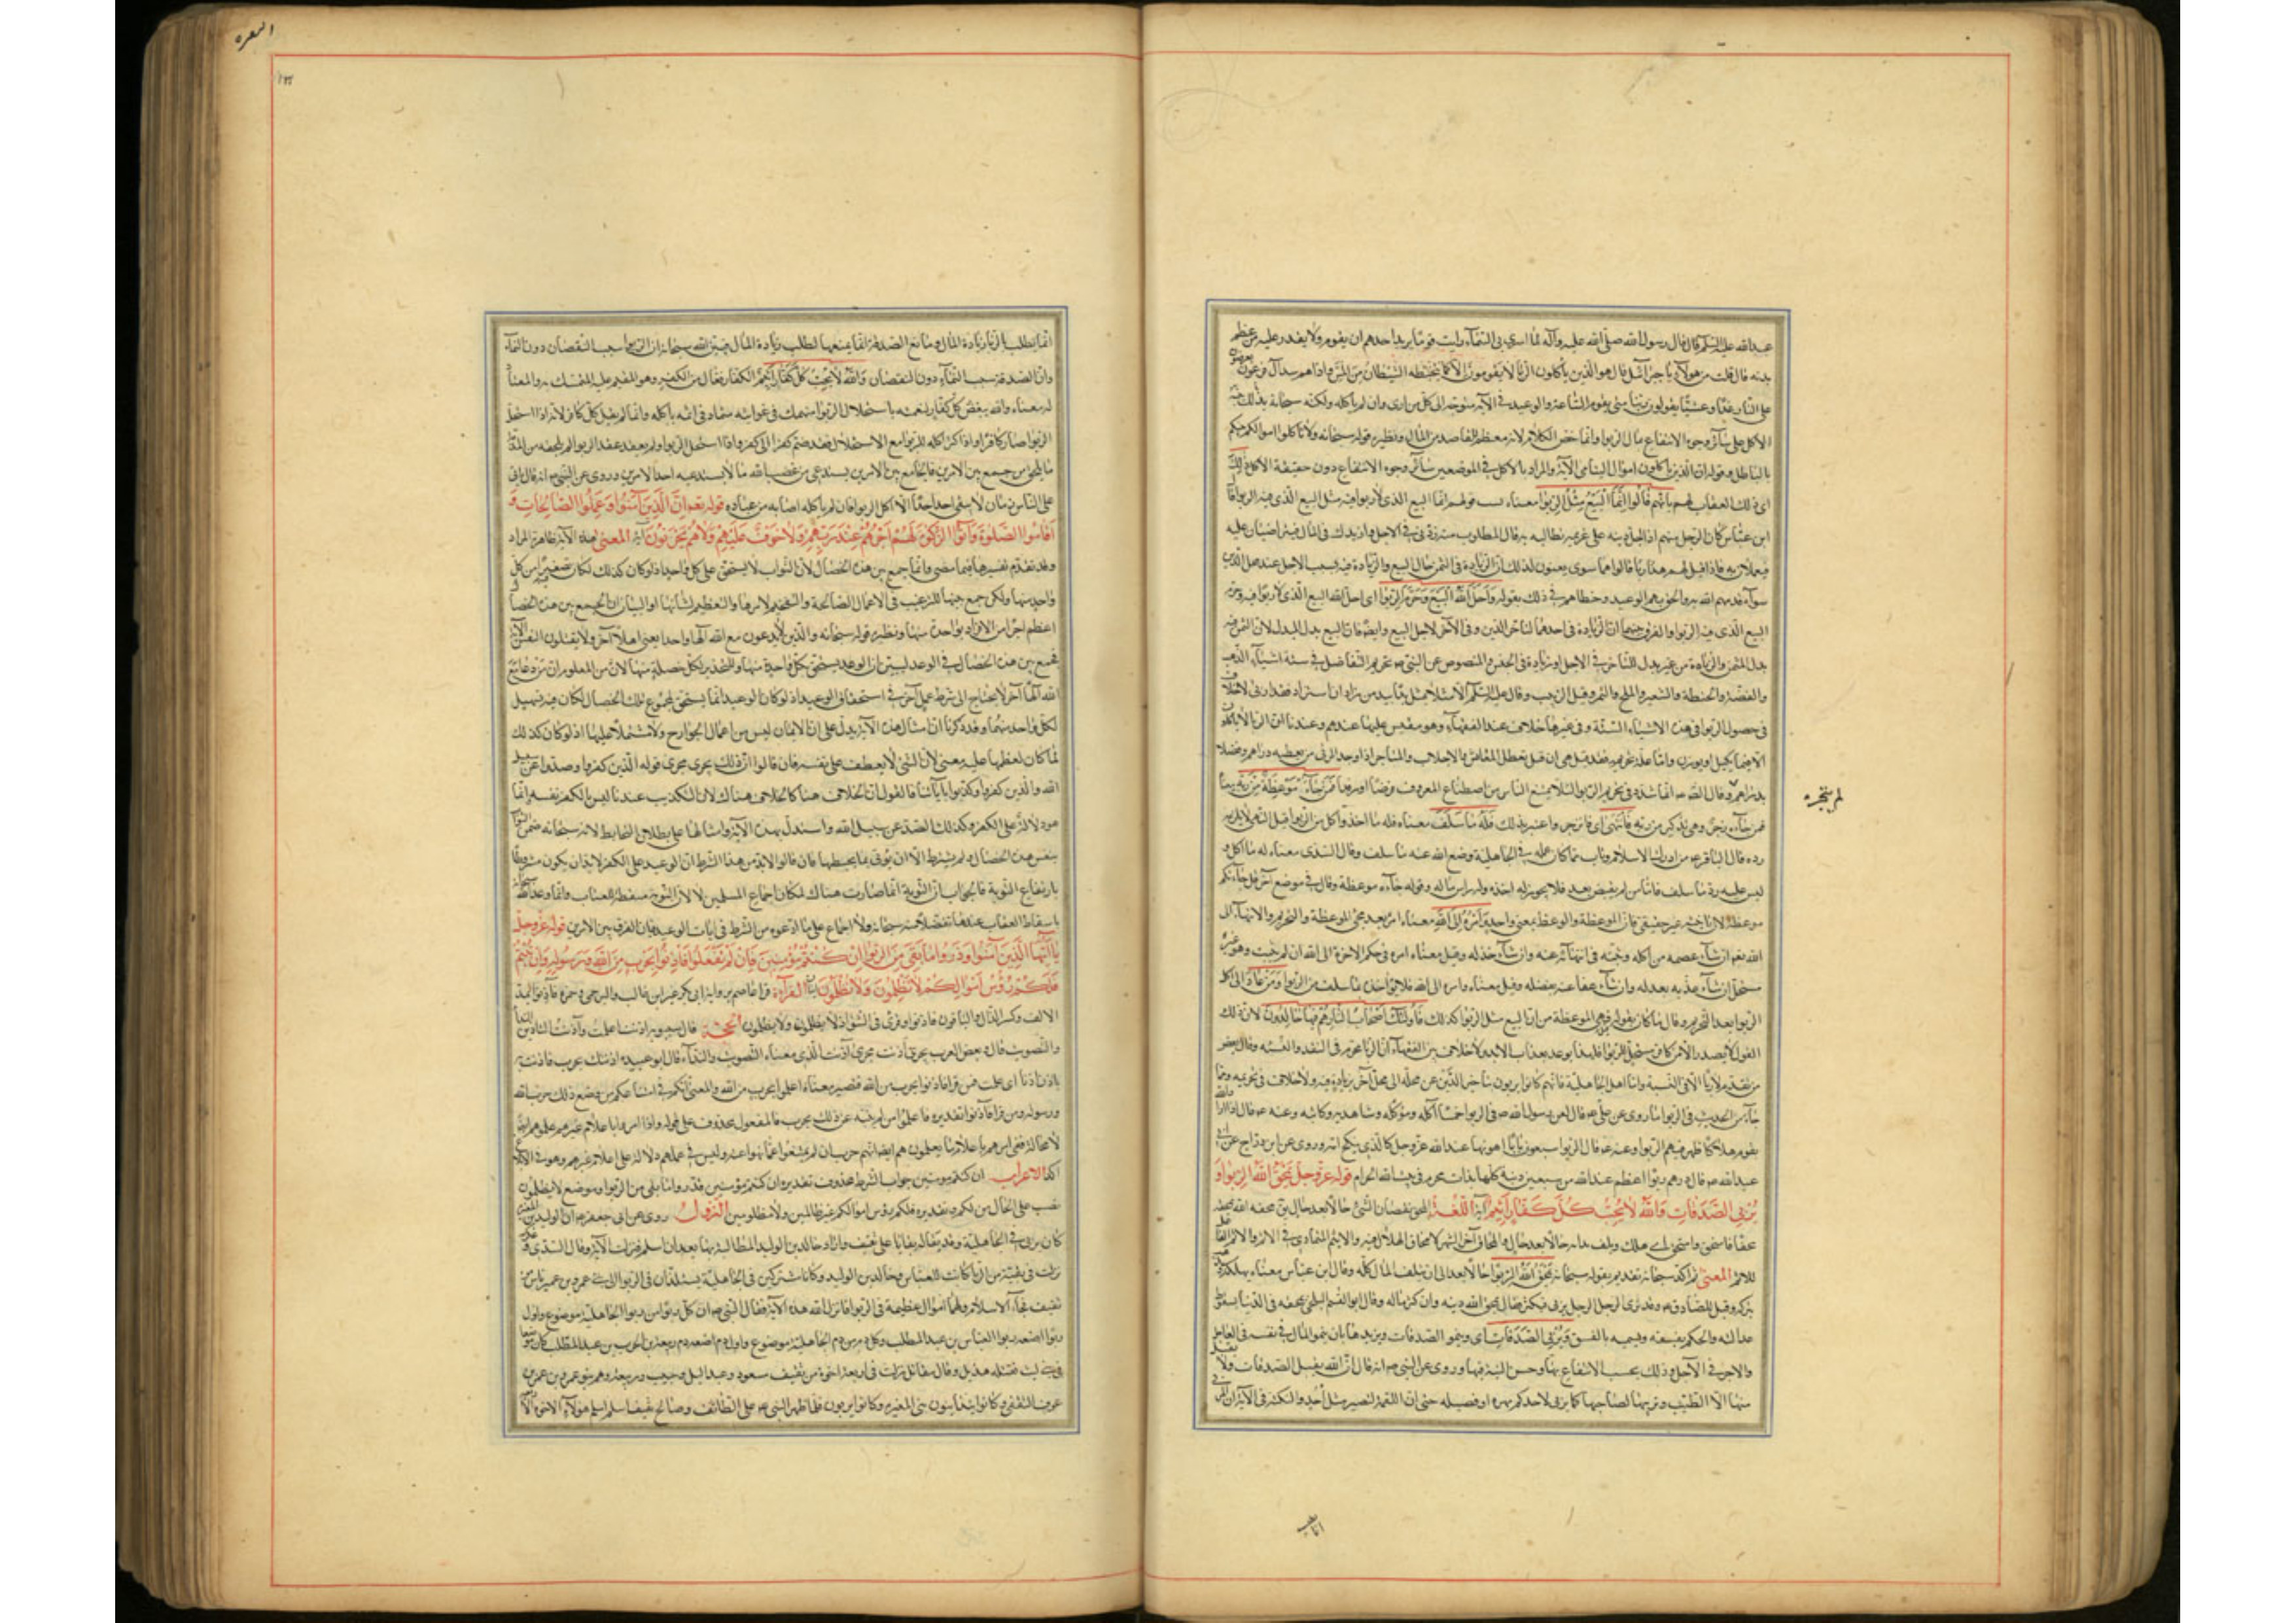 عبدالله عليه السلم قال قال رسول الله صلى الله عليه وآله لما اسري بي الى السماء رايت قوما يريد احدهم ان يقوم ولا يقدر عليه من عظم
بطنه قال قلت من هولاء يا جبرائيل قال هو الذين ياكلون الربا لا يقومون الا كما يقوم الذي يتخبطه الشيطان من المس واذا هم بسبيل آل فرعون يعرضون
على النار غدوا وعشيا يقولون ربنا متى تقوم الساعة والوعيد في الآية متوجه الى كل من اربى وان لم ياكله ولكنه سبحانه نبه بذلك
الاكل على سائر وجوه الانتفاع بمال الربوا وانما خص الاكل لانه معظم المقاصد من المال ونظيره قوله سبحانه ولا تاكلوا اموالكم بينكم
بالباطل وقوله ان الذين ياكلون اموال اليتامى الآية والمراد بالاكل في الموضعين سائر وجوه الانتفاع دون حقيقة الاكل ذلك
اى ذلك العقاب لهم بانهم قالوا انما البيع مثل الربوا معناه بسبب قولهم انما البيع الذى لا ربوا فيه مثل البيع الذى فيه الربوا قال
ابن عباس كان الرجل منهم اذا حل دينه على غريمه فطالبه به قال المطلوب منه زدني في الاجل وازيدك في المال فيتراضيان عليه
ويعملان به فاذا قيل لهم هذا ربا قالوا هما سوى يعنون بذلك ان الزيادة في الثمن حال البيع والزيادة فيه بسبب الاجل عند محل الدين
سواء فذمهم الله به والحق بهم الوعيد وخطاهم في ذلك بقوله واحل الله البيع وحرم الربوا اى احل الله البيع الذى لا ربوا فيه وحرم
البيع الذى فيه الربوا والفرق بينهما ان الزيادة في احدهما لتاخر الدين وفي الآخر لاجل البيع وايضا فان البيع بدل البدل لان الثمن فيه
بدل المثمن والزيادة من غير بدل للتاخر في الاجل او زيادة في الجنس والمنصوص عن النبي ص تحريم التفاضل في ستة اشياء الذهب
والفضة والحنطة والشعير والملح والتمر وقيل الزبيب وقال عليه السلم الا مثلا بمثل يدا بيد من زاد او استزاد فقد اربى لا خلاف
في حصول الربوا في هذه الاشياء الستة وفي غيرها خلاف عند الفقهاء وهو مقيس عليها عندهم وعندنا ان الربا لا يكون
الا فيما يكيل او يوزن واما علة تحريمه فقد قيل هي ان فيه تعطل المعاش والاجلاب والمتاجر اذا وجد المربي من يعطيه دراهم وفضلا
بدراهم وقال الصادق ع انما شدد في تحريم الربوا لئلا يمتنع الناس من اصطناع المعروف قرضا او رفدا فمن جاءه موعظة من ربه معناه
فمن جاءه زجر ونهي وتذكير من ربه فانتهى اى فانزجر واعتبر بذلك فله ما سلف معناه فله ما اخذ واكل من الربوا قبل النهي لا يلزمه
رده قال الباقر ع من ادرك الاسلام وتاب مما كان عمله في الجاهلية وضع الله عنه ما سلف وقال السدى معناه له ما اكل و
ليس عليه رد ما سلف فاما من لم يقبض بعد فلا يجوز له اخذه وله راس ماله وقوله جاءه موعظة وقال في موضع آخر قد جاءتكم
موعظة لان تانيثه غير حقيقي فان الموعظة والوعظ بمعنى واحد وامره الى الله معناه امره بعد مجئ الموعظة والتحريم والانتهاء الى
الله تعم ان شاء عصمه من اكله وثبته في انتهائه عنه وان شاء خذله وقيل معناه امره في حكم الاخرة الى الله ان لم يتب وهو غير
مستحل ان شاء عذبه بعدله وان شاء عفا عنه بفضله وقيل معناه وامره الى الله فلا يؤاخذه بما سلف من الربوا ومن عاد الى اكل
الربوا بعد التحريم وقال ما كان يقوله قبل مجئ الموعظة من ان البيع مثل الربوا كذلك فاولئك اصحاب النار هم فيها خالدون لان ذلك
القول لا يصدر الا من كافر مستحل للربوا فلهذا توعد بعذاب الابد ولا خلاف بين الفقهاء ان الربا محرم في النقد والنسية وقال بعض
من تقدم لا ربا الا في النسية واما اهل الجاهلية فانهم كانوا يربون بتاخير الدين عن محله الى محل آخر بزيادة فيه ولا خلاف في تحريمه ومما
جاء من الحديث في الربوا ما روى عن على ع قال لعن رسول الله ص في الربوا خمسا آكله وموكله وشاهديه وكاتبه وعنه ع قال اذا اراد الله
بقوم هلاكا ظهر فيهم الربوا وعنه ع قال الربوا سبعون بابا اهونها عند الله عز وجل كالذى ينكح امه وروى عن ابن دراج عن ابي
عبدالله ع قال درهم ربوا اعظم عند الله من سبعين زنية كلها بذات محرم في بيت الله الحرام قوله عز وجل يمحق الله الربوا و
يربي الصدقات والله لا يحب كل كفار اثيم آية اللغة المحق نقصان الشئ حالا بعد حال يق محقه الله يمحقه
محقا فامتحق وامتحق اى هلك وتلف بذهابه حالا بعد حال والمحاق آخر الشهر لامحاق الهلال فيه والاثيم المتمادي في الاثم والاثم الفاعل
للاثم المعنى ثم اكد سبحانه تقديم بقوله سبحانه يمحق الله الربوا حالا بعد حال الى ان يتلف المال كله وقال ابن عباس معناه يهلكه
بركته وقيل للصادق ع وقد نرى الرجل يربي فيكثر ماله فقال يمحق الله دينه وان كثر ماله وقال ابو القسم البلخي يمحقه في الدنيا بسقوط
عدالته والحكم بفسقه وتسميته بالفسق ويربي الصدقات اى وينمو الصدقات ويزيدها بان يثمر المال في نفسه في العاجل
والاجر في الآجل وذلك بحسب الانتفاع بها وحسن النية فيها وروى عن النبي ص انه قال ان الله يقبل الصدقات ولا يقبل
منها الا الطيب ويربيها لصاحبها كما يربي احدكم مهره او فصيله حتى ان اللقمة لتصير مثل احد والنكتة في الآية ان المربي
انما
البقره
انما يطلب بالربا زيادة المال ومانع الصدقة انما يمنعها لطلب زيادة المال فبين الله سبحانه ان الربوا سبب النقصان دون النماء
وان الصدقة سبب النماء دون النقصان والله لا يحب كل كفار اثيم الكفار فعال من الكفر وهو المقيم عليه المتمسك به والمعتاد
له معناه والله يبغض كل كفار لنعمته باستحلال الربوا منهمك في غوايته متماد في اثمه باكله وانما لم يقل كل كافر لانه اذا استحل
الربوا صار كافرا واذا كثر اكله للربوا مع الاستحلال فقد ضم كفرا الى كفر واذا استحل الربوا ولم يعتقد عقد الربوا لم يلحقه من الذم
ما يلحق من جمع بين الامرين فالجامع بين الامرين يستدعي من غضب الله ما لا يستدعيه احد الامرين وروى عن النبي ص انه قال ياتي
على الناس زمان لا يبقى احد الا اكل الربوا فان لم ياكله اصابه من غباره قوله تعم ان الذين آمنوا وعملوا الصالحات و
اقاموا الصلوة وآتوا الزكوة لهم اجرهم عند ربهم ولا خوف عليهم ولا هم يحزنون آية المعنى هذه الآية ظاهرة المراد
وقد تقدم تفسيرها فيما مضى وانما جمع بين هذه الخصال لان الثواب لا يستحق على كل واحد اذ لو كان كذلك لكان فيه تضييع من كل
واحد منها ولكن جمع بينها للترغيب في الاعمال الصالحة والتفخيم لامرها والتعظيم لشانها او لبيان ان الجمع بين هذه الخصال
اعظم اجرا من الافراد بواحدة منها ونظيره قوله سبحانه والذين لا يدعون مع الله الها واحدا يعني اهلا آخر ولا يقتلون النفس الآية
فجمع بين هذه الخصال في الوعيد ليبين ان الوعيد يستحق بكل واحدة منها وللتحذير لكل خصلة منها لان من المعلوم ان من دعا مع
الله الها آخر لا يحتاج الى شرط عمل آخر في استحقاق الوعيد اذ لو كان الوعيد انما يستحق بمجموع تلك الخصال لكان فيه تسهيل
لكل واحد منها وقد ذكرنا ان مثال هذه الآية يدل على ان الايمان ليس من اعمال الجوارح ولا مشتملا عليها اذ لو كان كذلك
لما كان لعطفها عليه معنى لان الشئ لا يعطف على نفسه فان قالوا ان ذلك يجرى مجرى قوله الذين كفروا وصدوا عن سبيل
الله والذين كفروا وكذبوا باياتنا فالقول ان الخلاف هنا كالخلاف هناك لان التكذيب عندنا ليس بالكفر نفسه وانما
هو دلالة على الكفر وكذلك الصد عن سبيل الله واستدل بهذه الآية وامثالها على بطلان التحابط لانه سبحانه ضمن الثواب
بنفس هذه الخصال ولم يشترط الا ان يؤتى بما يحبطها فان قالوا لابد من هذا الشرط ان الوعيد على الكفر لابد ان يكون مشروطا
بارتفاع التوبة فالجواب ان التوبة انما صارت هناك لمكان اجماع المسلمين لا لان التوبة مسقطة للعقاب وانما وعد الله سبحانه
باسقاط العقاب عندها تفضلا منه سبحانه ولا اجماع على ما ادعوه من الشرط في ايات الوعيد فبان الفرق بين الامرين قوله عز وجل
يا ايها الذين آمنوا اتقوا الله وذروا ما بقي من الربوا ان كنتم مؤمنين فان لم تفعلوا فاذنوا بحرب من الله ورسوله وان تبتم
فلكم رؤس اموالكم لا تظلمون ولا تظلمون آيتان القرآءة قرا عاصم برواية ابي بكر غير ابن غالب والبرجمي وحمزة فاذنوا بالمد
الالف وكسر الذال والباقون فاذنوا وقرئ في الشواذ لا يظلمون ولا يظلمون الحجة قال سيبويه اذنت اعلمت وآذنت النداء
والتصويت قال وبعض العرب يجرى اذنت مجرى آذنت الذى معناه التصويت والنداء قال ابو عبيده اذنتك بحرب فاذنت به
ياذن اذنا اى علمت فمن قرا فاذنوا بحرب من الله فتقديره معناه اعلموا بحرب من الله والمعنى انكم في امتناعكم من وضع ذلك حرب الله
ورسوله ومن قرا فآذنوا تقديره فاعلموا من لم ينته عن ذلك بحرب فالمفعول محذوف على قوله واذا امروا باعلام غيرهم علموا هم ايضا
لا محالة ففي امرهم بالاعلام ما يعلمون هم ايضا انهم حرب ان لم يمتنعوا عما نهوا عنه وليس في علمهم دلالة على اعلام غيرهم وهو في الابلاغ
آكد الاعراب ان كنتم مومنين جواب الشرط محذوف تقديره ان كنتم مؤمنين فذروا ما بقي من الربوا وموضع لا يظلمون
نصب على الحال من لكم وتقديره فلكم رؤس اموالكم غير ظالمين ولا مظلومين النزول روى عن ابي جعفر ع ان الوليد بن المغيرة
كان يربي في الجاهلية وقد بقي له بقايا على ثقيف واراد خالد بن الوليد المطالبة بها بعد ان اسلم فنزلت الآية وقال السدى و
نزلت في بقية من الربا كانت للعباس وخالد بن الوليد وكانا شريكين في الجاهلية يسلفان في الربوا الى بني عمرو بن عمير ناس من
ثقيف فجاء الاسلام ولهما اموال عظيمة في الربوا فانزل الله هذه الآية فقال النبي ص ان كل ربوا من ربوا الجاهلية موضوع واول
ربوا اضعه ربوا العباس بن عبد المطلب وكل دم من دم الجاهلية موضوع واول دم اضعه دم ربيعة بن الحرث بن عبد المطلب كان مرضعا
في بني ليث فقتله هذيل وقال مقاتل نزلت في اربعة اخوة من ثقيف مسعود وعبد ياليل وحبيب وربيعة وهم بنو عمرو بن عمير بن
عوف الثقفي وكانوا يداينون بني المغيرة وكانوا يربون فلما ظهر النبي ص على الطائف وصالح ثقيفا اسلم هؤلاء الاخوة